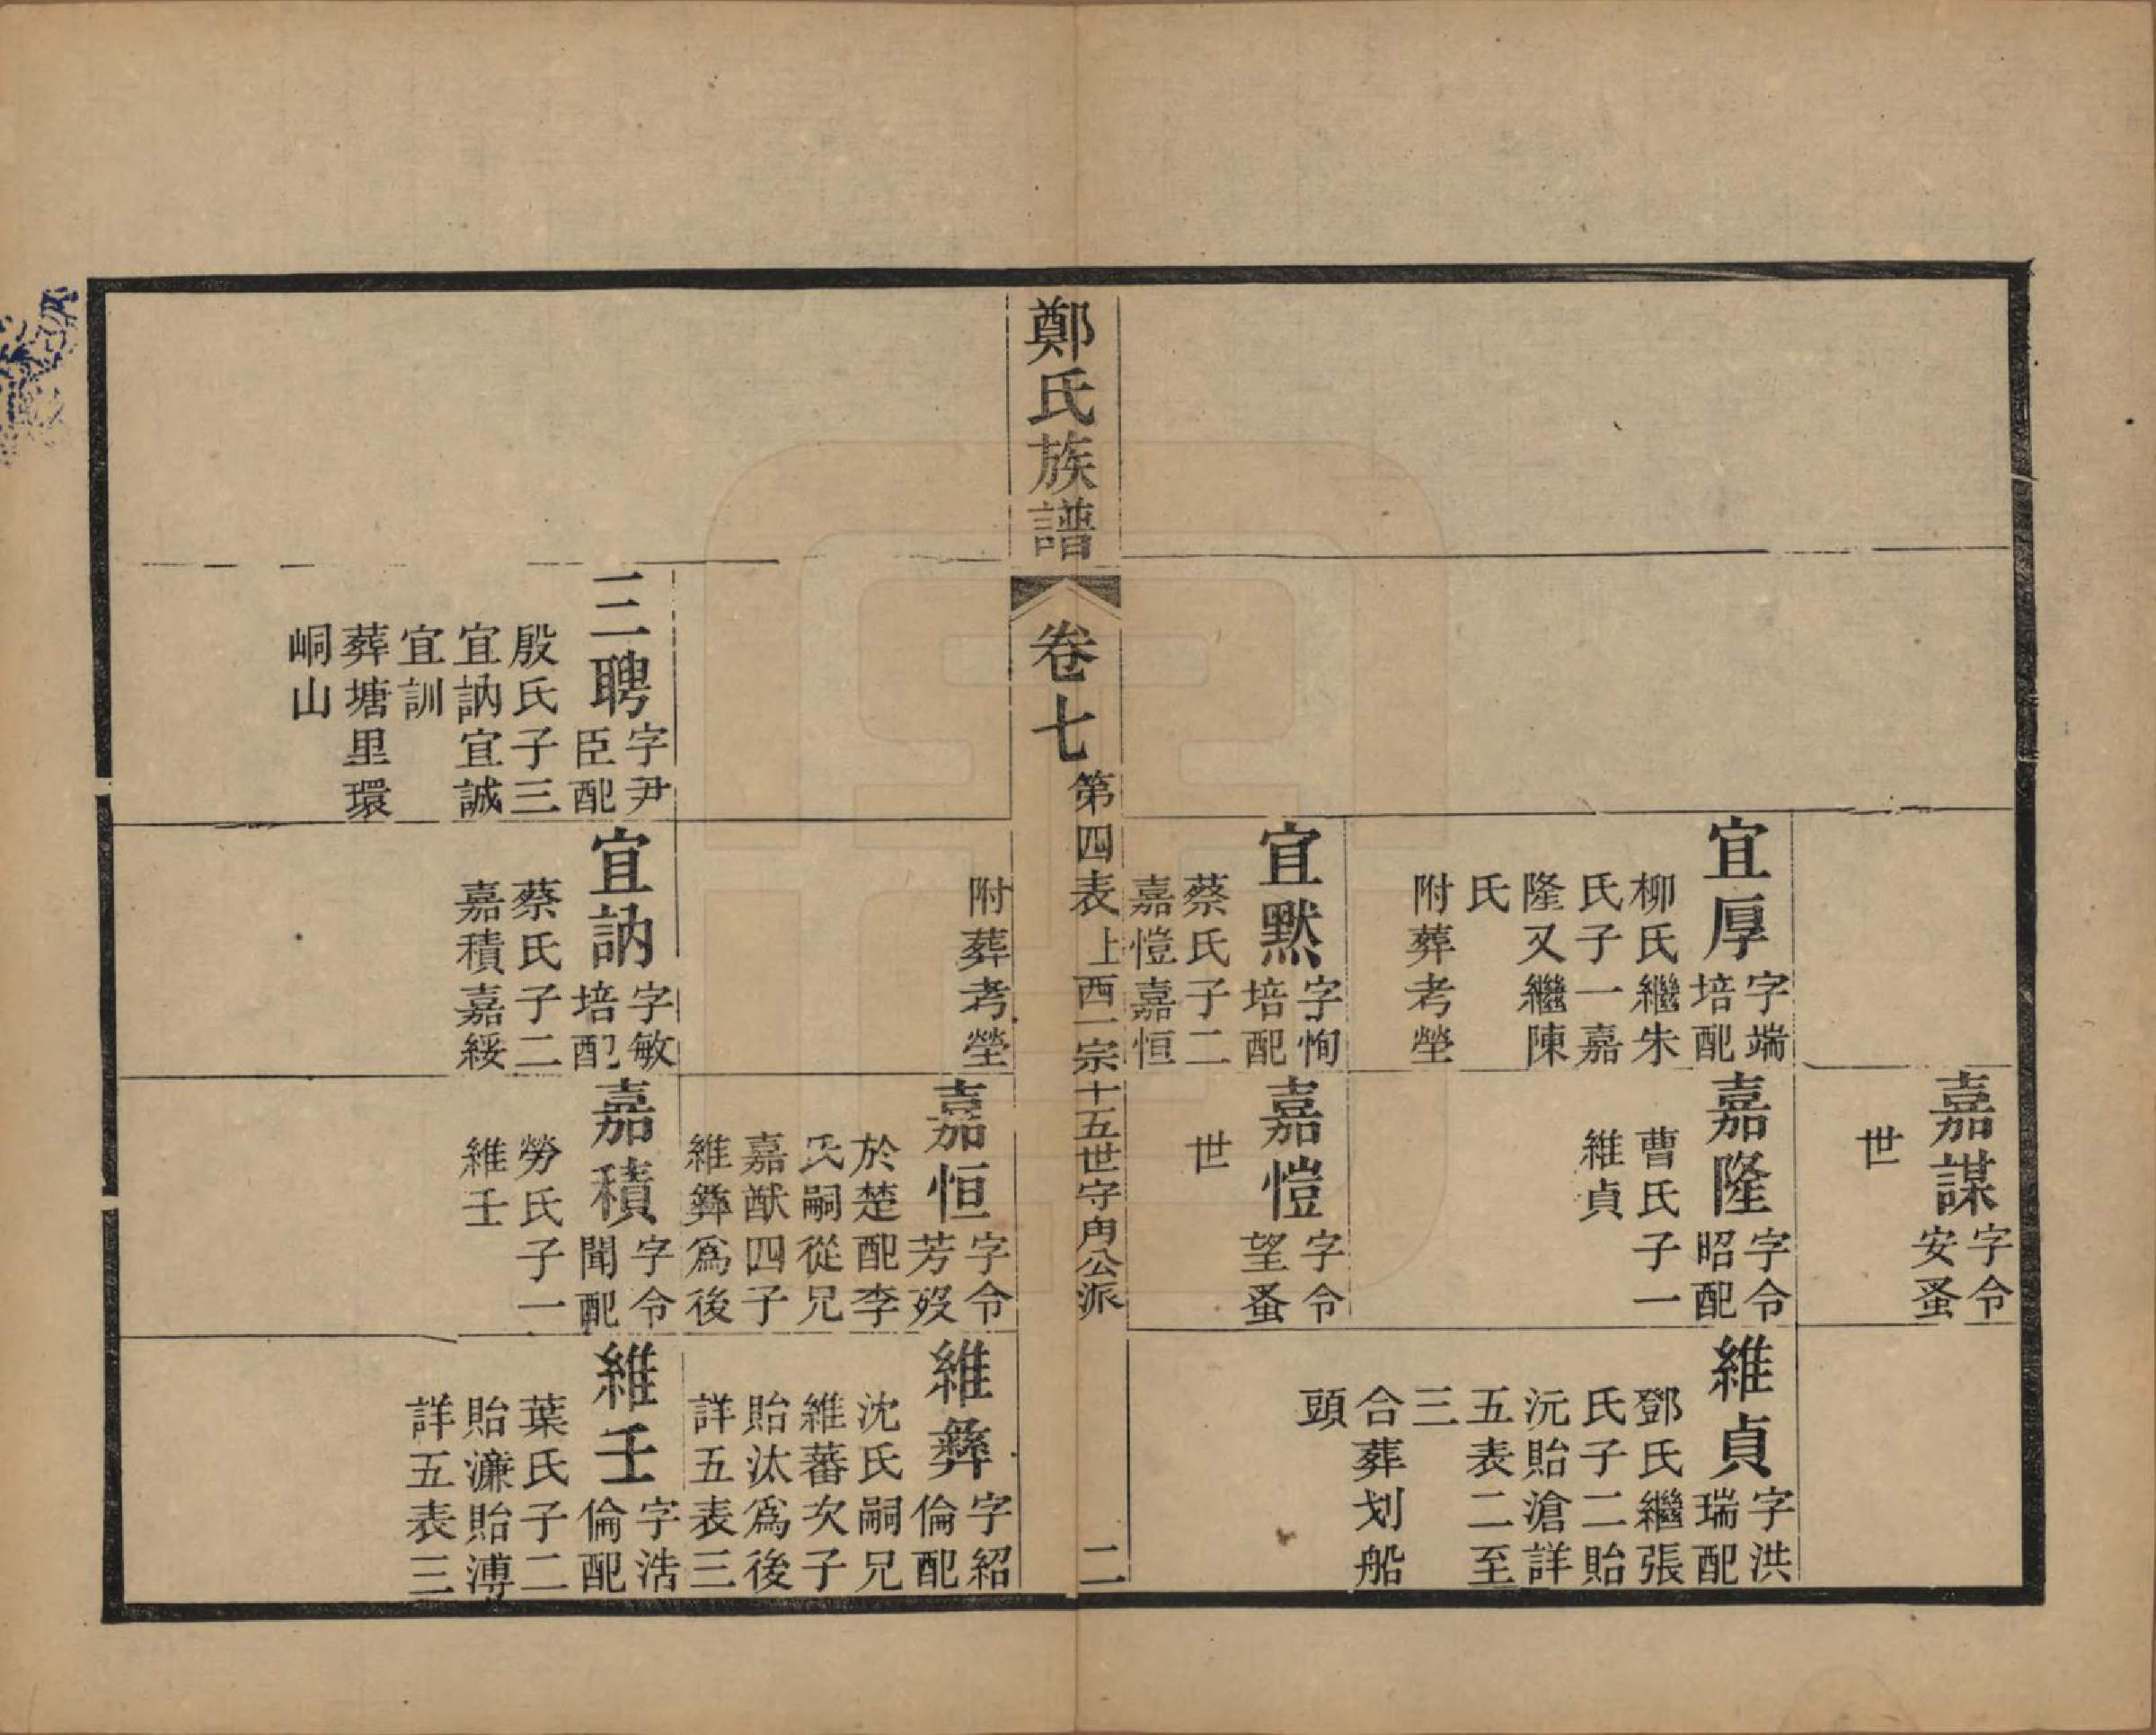 嘉謀字令
安蚤
世
宜厚字端
培配
柳氏繼朱
氏子一嘉
隆又繼陳
氏
附葬考塋
嘉隆字令
昭配
曹氏子一
維貞
維貞字洪
瑞配
鄧氏繼張
氏子二貽
沅貽滄詳
五表二至
三
合葬划船
頭
宜默字恂
培配
蔡氏子二
嘉愷嘉恒
嘉愷字令
望蚤
世
鄭氏族譜
卷七
第四表上西一宗十五世守角公派
二
附葬考塋
嘉恒字令
芳歿
於楚配李
氏嗣從兄
嘉猷四子
維彝爲後
維彝字紹
倫配
沈氏嗣兄
維蕃次子
貽汰爲後
詳五表三
三聘字尹
臣配
殷氏子三
宜訥宜誠
宜訓
葬塘里環
峒山
宜訥字敏
培配
蔡氏子二
嘉積嘉綏
嘉積字令
聞配
勞氏子一
維壬
維壬字浩
倫配
葉氏子二
貽濂貽溥
詳五表三